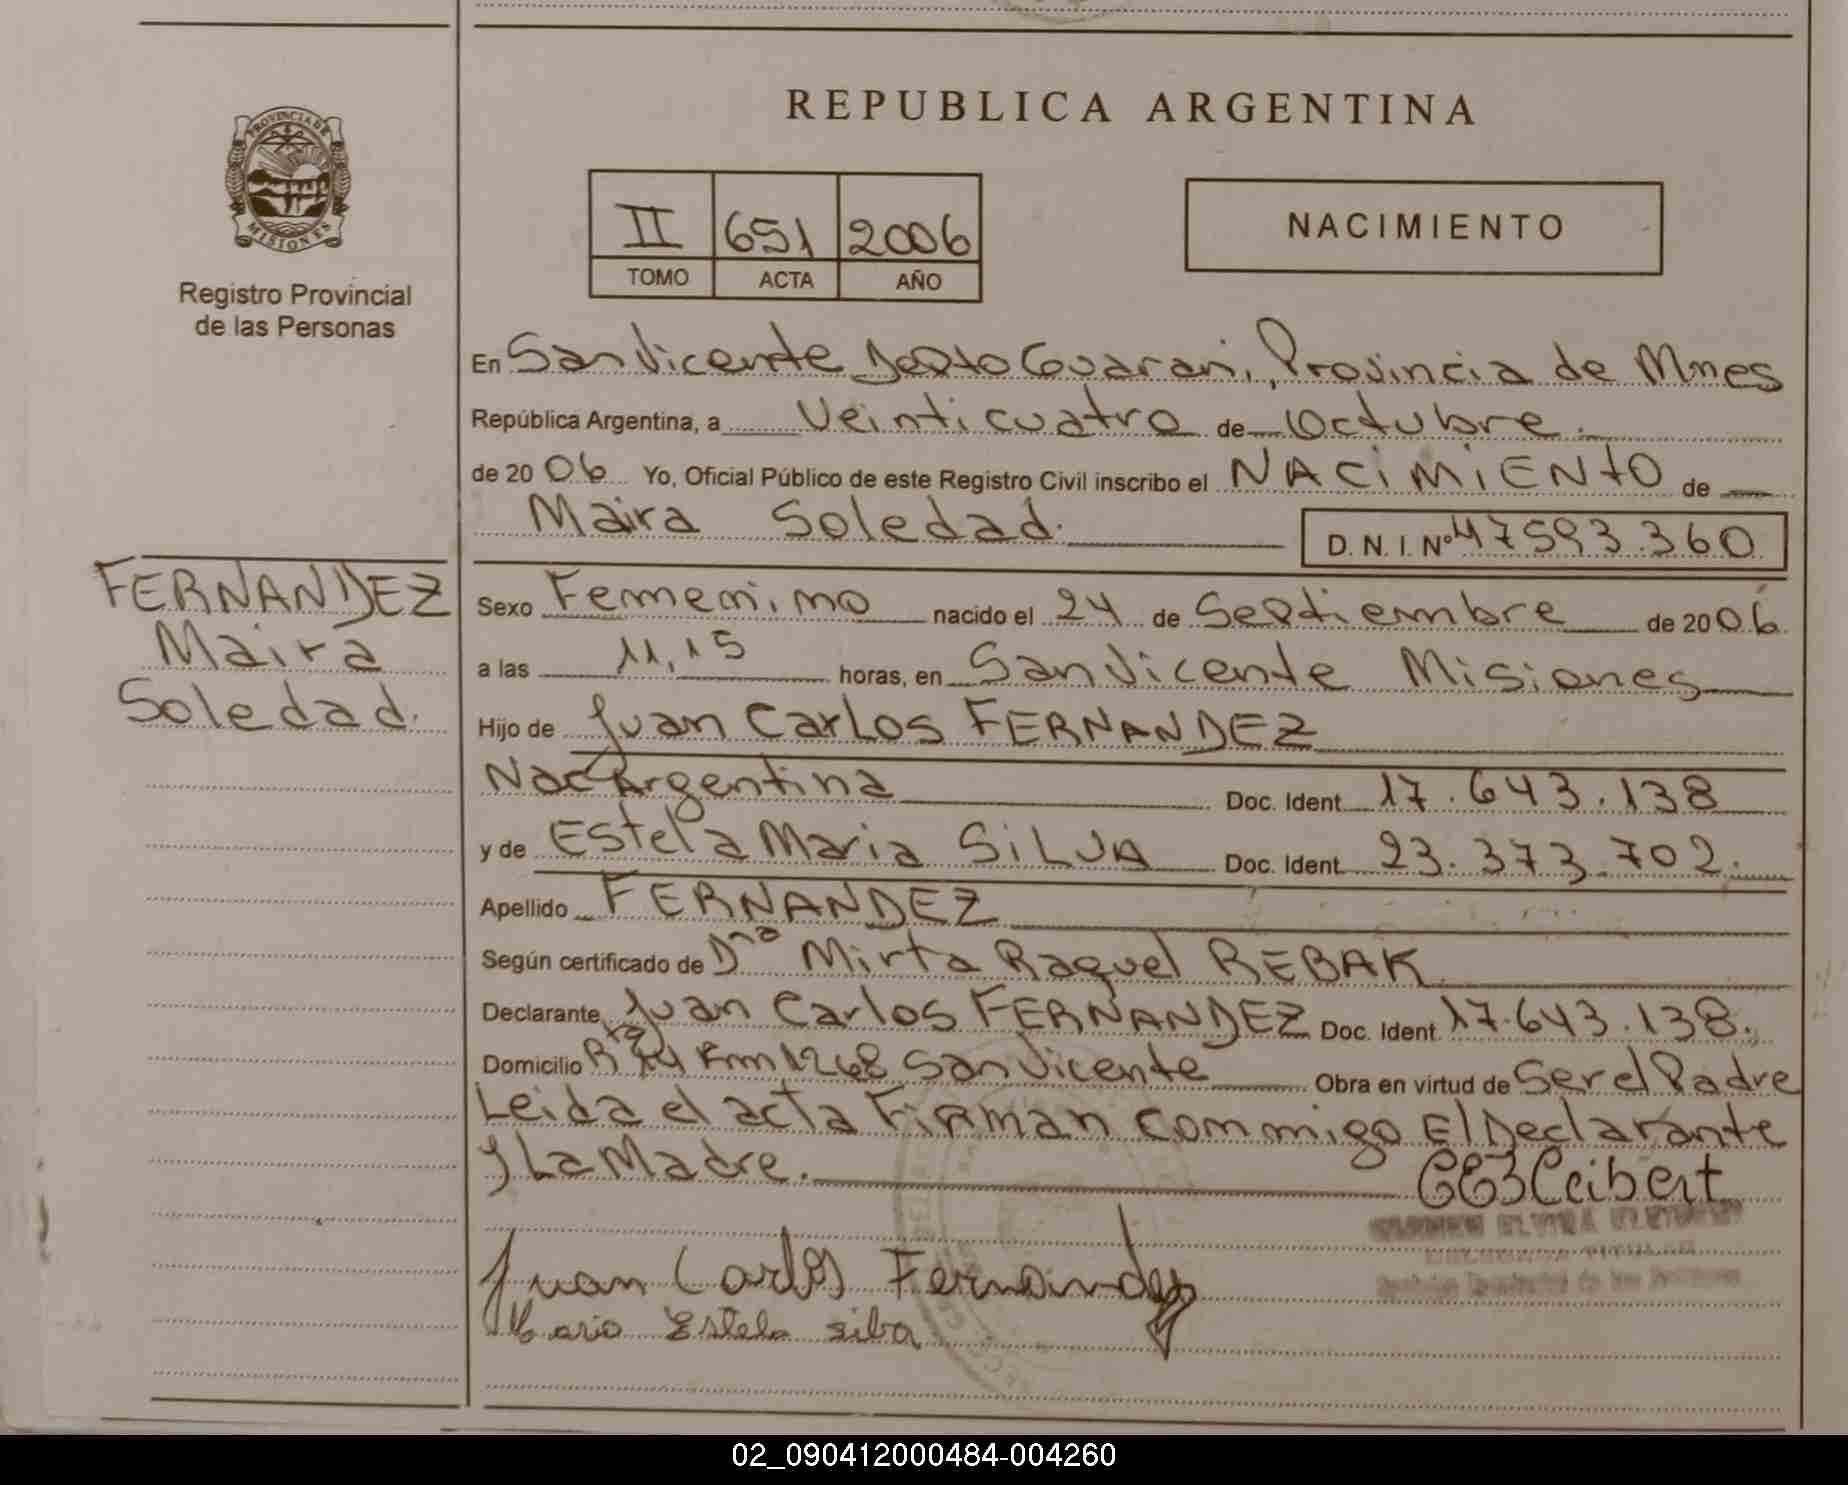 REPUBLICA ARGENTINA
PROVINCIA DE
MISIONES
Registro Provincial
de las Personas
II 651 2006
TOMO ACTA AÑO
NACIMIENTO
En San Vicente Depto Guarani, Provincia de Mnes
República Argentina, a Veinticuatro de Octubre.
de 2006 Yo, Oficial Público de este Registro Civil inscribo el NACIMIENTO de
Maira Soledad.
D. N. I. Nº 47593.360
FERNANDEZ
Maira
Soledad.
Sexo Femenino nacido el 24 de Septiembre de 2006
a las 11,15 horas, en San Vicente Misiones
Hijo de Juan Carlos FERNANDEZ
Nac Argentina Doc. Ident. 17.643.138
y de Estela Maria SILVA Doc. Ident. 23.373.702.
Apellido FERNANDEZ
Según certificado de Dña Mirta Raquel REBAK
Declarante Juan Carlos FERNANDEZ Doc. Ident. 17.643.138.
Domicilio Rta 14 Km 1268 San Vicente Obra en virtud de Ser el Padre
Leida el acta Firman conmigo El Declarante
y La Madre.
Juan Carlos Fernandez
Maria Estela silva
02_090412000484-004260